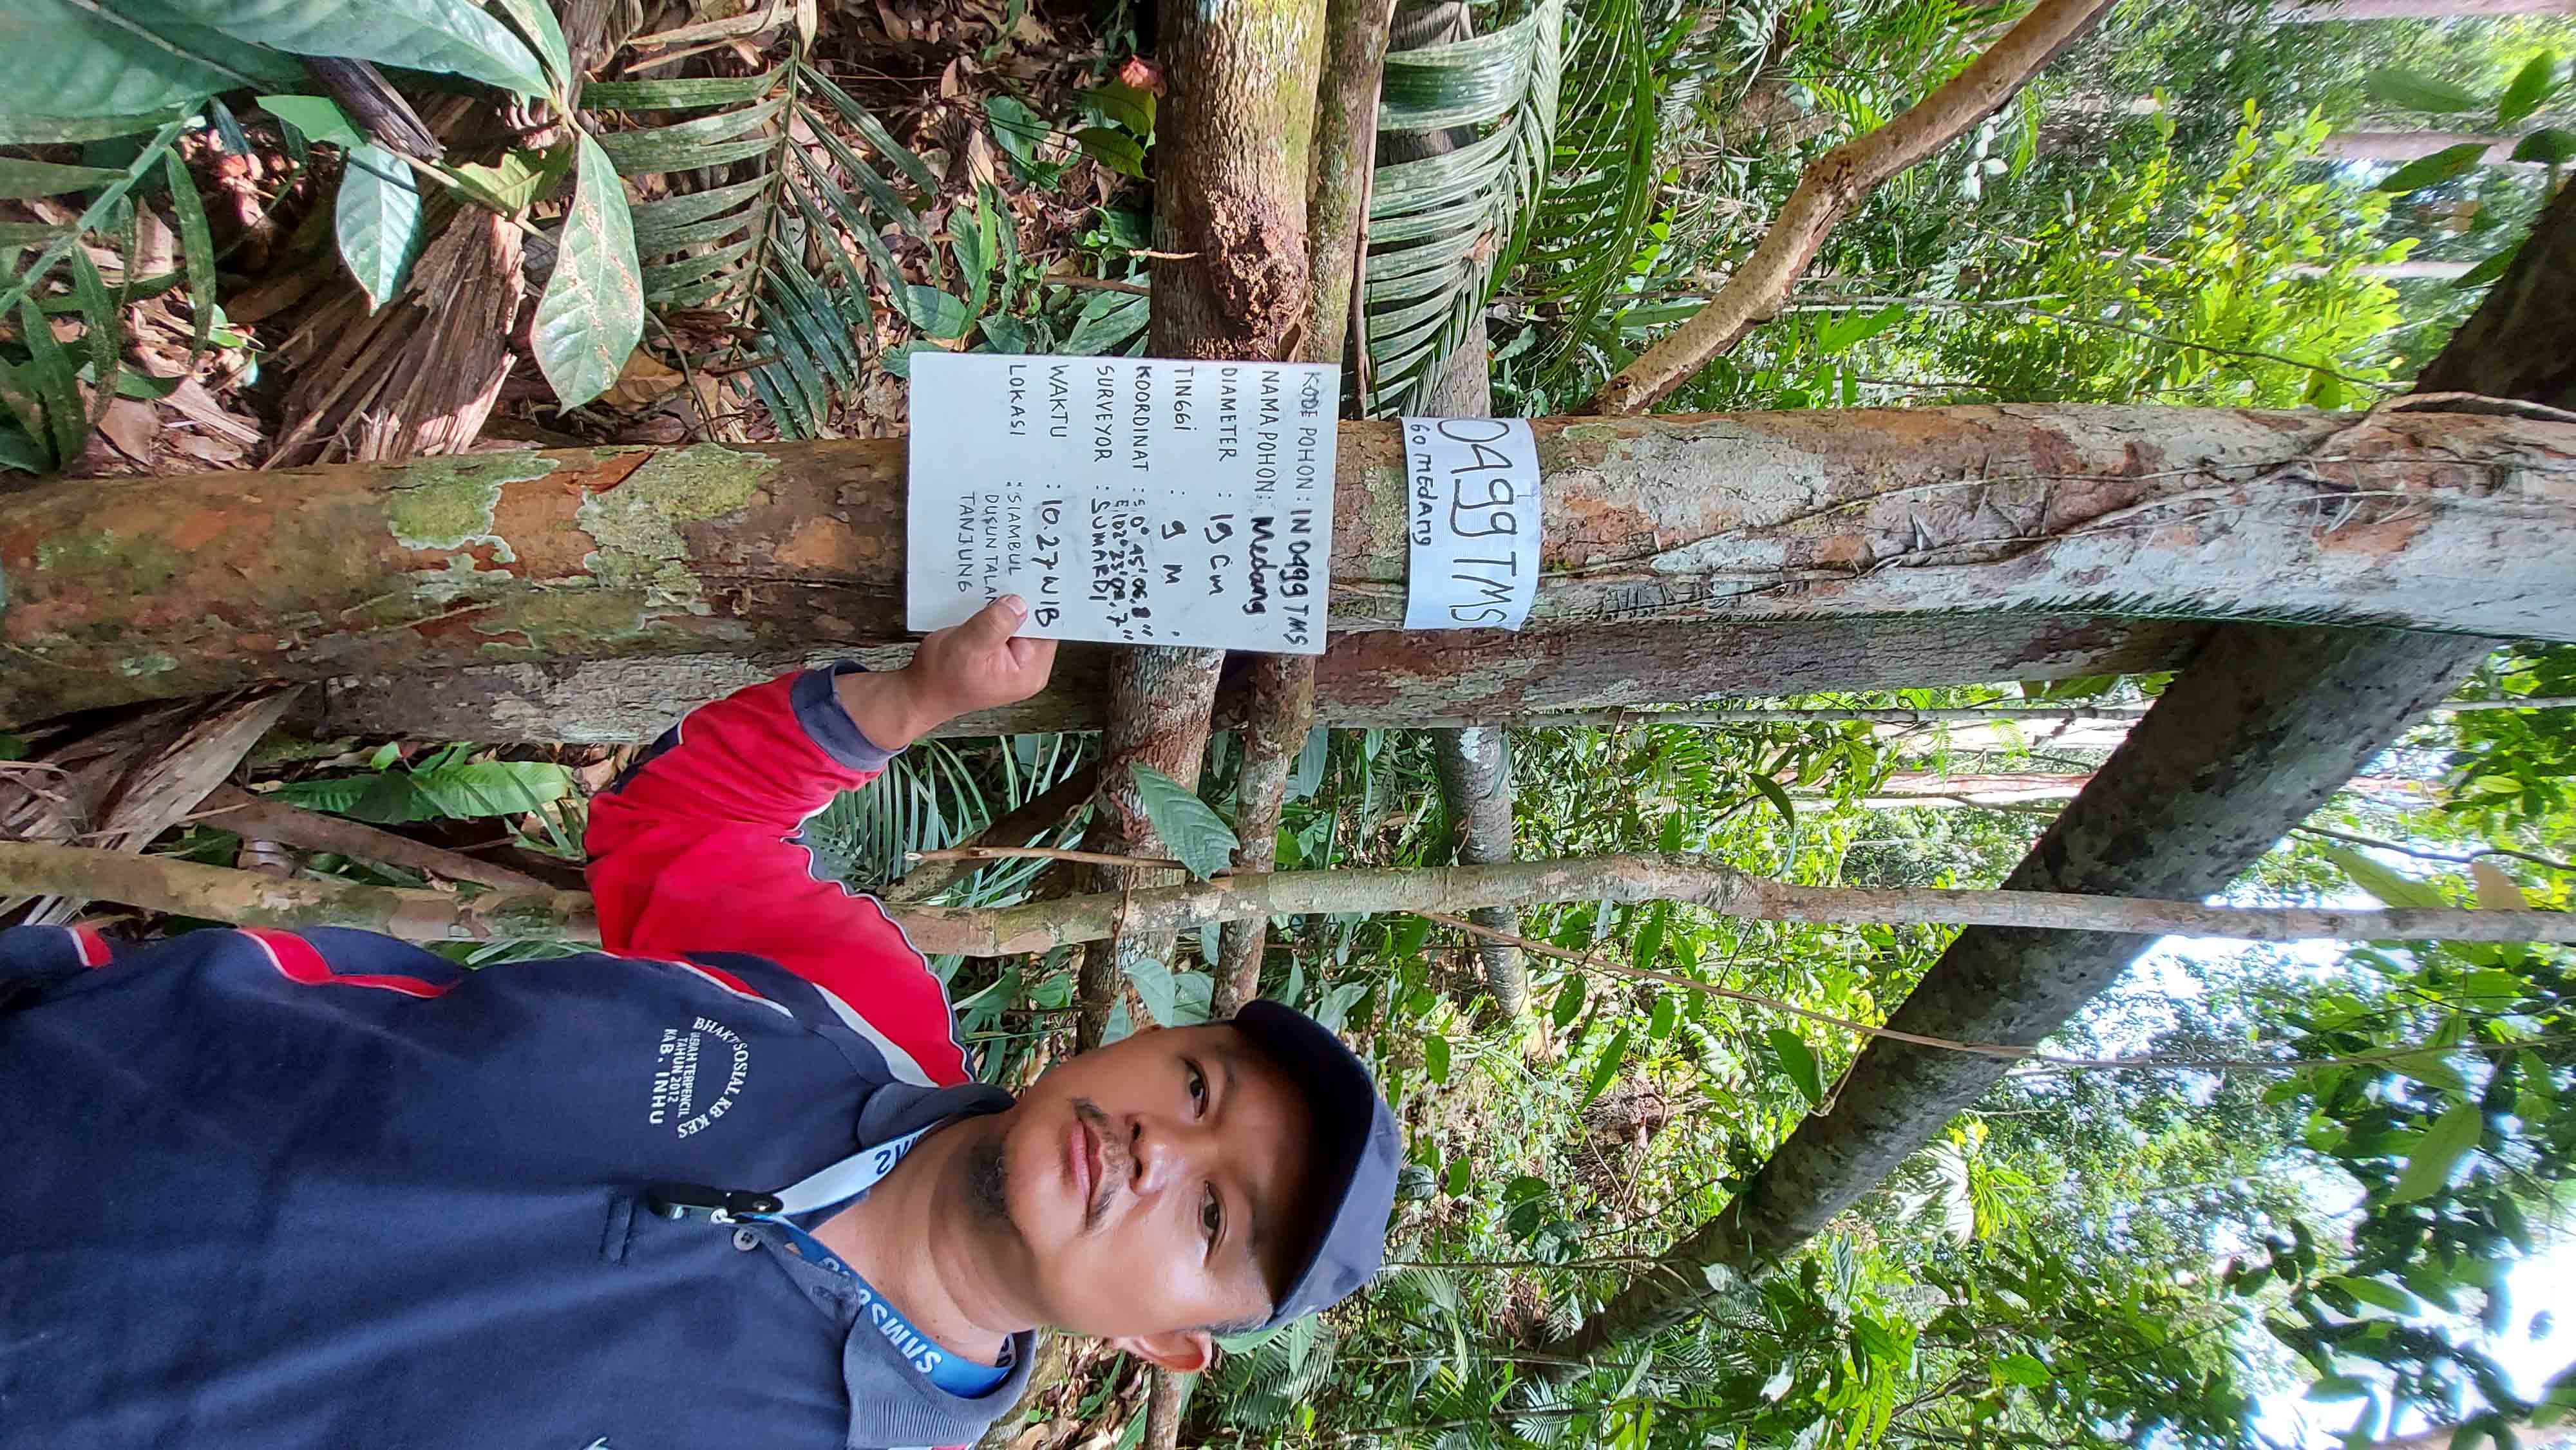 KODE POHON : IN 0499 TMS
NAMA POHON : Medang
DIAMETER : 19 Cm
TINGGI : 9 M
KOORDINAT : S 0° 45' 06.8"
E 102° 33' 09.7"
SURVEYOR : SUMARDI
WAKTU : 10.27 WIB
LOKASI : SIAMBUL
DUSUN TALAN
TANJUNG
0499 TMS
60 MEdANg
BHAKTI SOSIAL KB KES
DAERAH TERPENCIL
TAHUN 2012
KAB. INHU
SAMSU